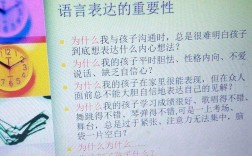 语言表达的重要性
为什么我与孩子沟通时，总是很难明白孩子
到底想表达什么内心想法？
为什么我的孩子平时胆怯、性格内向、不爱
说话、缺乏自信心？
为什么我的孩子在家里很能表现，但在众人
面前总不能大胆自信地表达自己的……
为什么我的孩子学习成绩很好、歌唱得不错、
舞跳得不错、琴弹得不错，可是一上考场、
舞台，总是过于紧张、注意力无法集中，脑
袋一片空白？
为什么